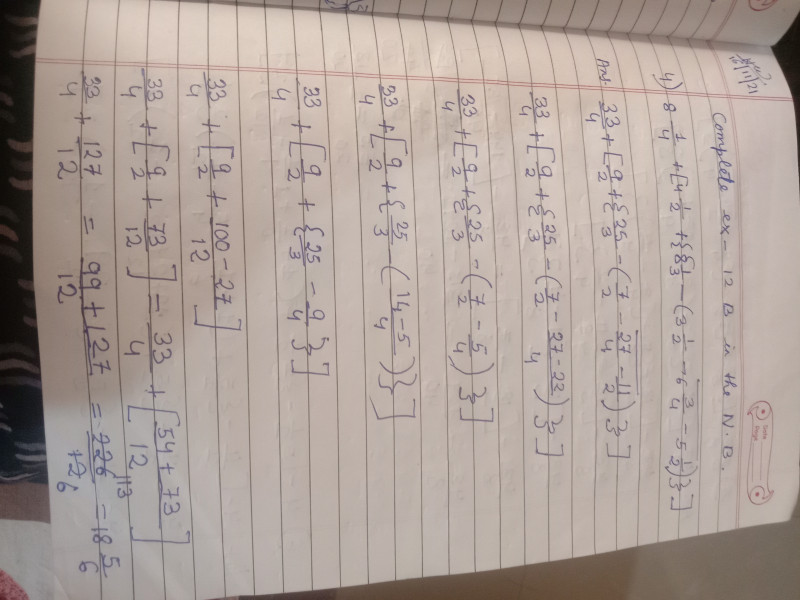 Complete ex- 12 B in the N.B.
4) 8 1/4 + [4 1/2 + {8 1/3 - (3 1/2 - 6 3/4 - 5 1/2)}]
Ans. 33/4 + [9/2 + {25/3 - (7/2 - 27/4 - 11/2)}]
33/4 + [9/2 + {25/3 - (7/2 - 27-22/4)}]
33/4 + [9/2 + {25/3 - (7/2 - 5/4)}]
33/4 + [9/2 + {25/3 - (14-5/4)}]
33/4 + [9/2 + {25/3 - 9/4}]
33/4 + [9/2 + 100-27/12]
33/4 + [9/2 + 73/12] = 33/4 + [54+73/12]
33/4 + 127/12 = 99+127/12 = 226/12 113 6 = 18 5/6